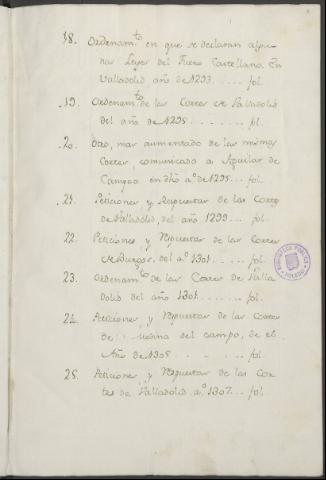 18. Ordenam.to en que se declaran algu-
nas Leyes del Fuero Castellano. En
Valladolid año de 1293. .... fol.
19. Ordenam.to de las Cortes de Valladolid
del año de 1295 ...... fol.
20. Otro, mas aumentado de las mismas
Cortes, comunicado a Aguilar de
Campoo en dho a.o de 1295... fol.
21. Peticiones y Respuestas de las Cortes
de Valladolid, del año 1299 ... fol.
22. Peticiones, y Respuestas de las Cortes
de Burgos, del a.o 1301. .... fol.
23. Ordenam.to de las Cortes de Valla
dolid del año 1301 ....... fol.
24. Peticiones y Respuestas de las Cortes
de Medina del campo, de el
Año de 1305 . . . . . . fol.
25. Peticiones, y Respuestas de las Cor-
tes de Valladolid a.o 1307... fol.
BIBLIOTECA PUBLICA
TOLEDO